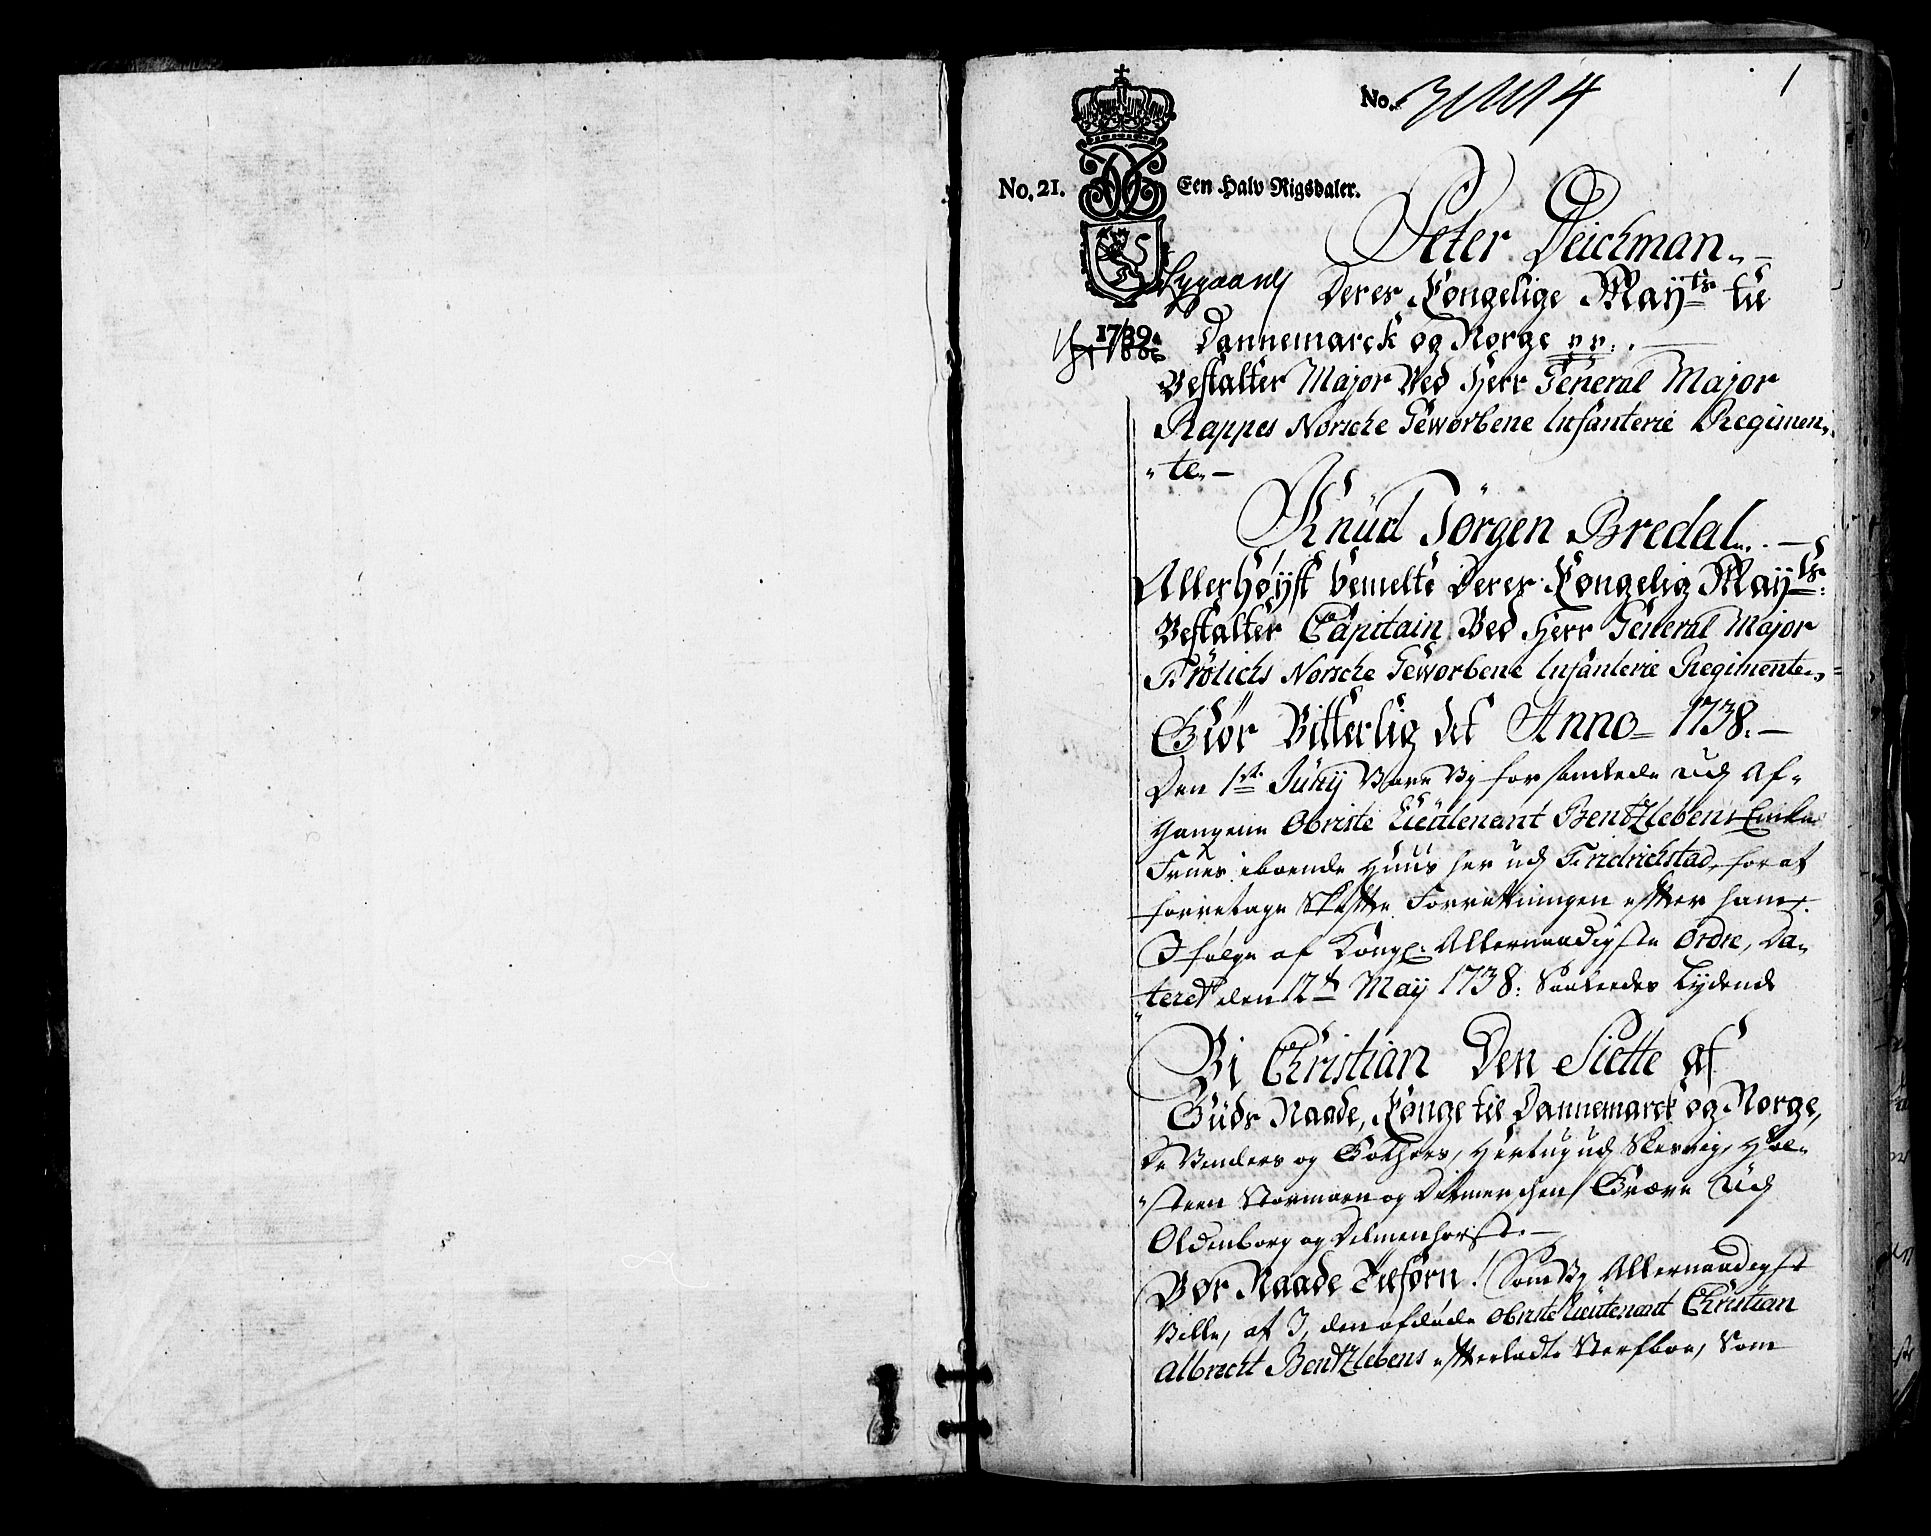 1
No. 4
No. 21. Een Halv Rigsdaler.
Peter Deichman
Deres Kongelige Mayts til
1739. Dannemarck og Norge pp:
Bestalter Major Ved Herr General Major
Rappes Norsche Geworbene Infanterie Regimen
te
Knüd Jörgen Bredal
Allerhöyst bemelte Deres Kongelig Mayts:
Bestalter Capitain Ved Herr General Major
Frölichs Norsche Geworbene Infanterie Regimente
Giör Vitterlig det Anno 1738.
Den 1ste Juny Vare Vy forsamlede udj Af-
gangene Obriste Lieutenant Bentzlebens Encke
Frues iboende Huus her udj Fridrichstad, for at
foretage Skiftte Forretningen eftter ham.
J fölge af Kongl: Allernaadigste Ordre, Da-
teret den 12te May 1738: Saaledes Lydende
Vi Christian Den Siette af
Guds Naade, Konge til Dannemarck og Norge,
De Venders og Gothers, Hertug udj Slesvig, Hol-
steen Stormarn og Ditmerschen, Greve Udj
Oldenborg og Delmenhorst.
Vor Naade Tilforn! Som Vy Allernaadigst
Ville, at J, den afdöde Obriste Lieutenant Christian
Albrecht Bentzlebens eftterladte Sterfboe, Som